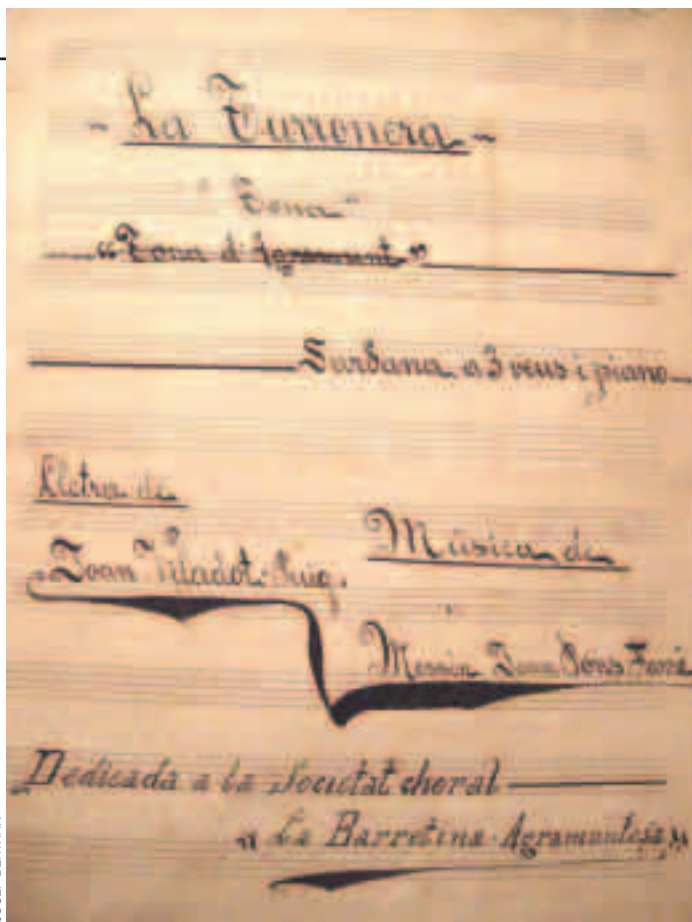 - La Turronera -
"Dona"
«Dona d'Agramunt»
Sardana a 3 veus i piano
Lletra de
Joan Viladot Puig.
Música de
Mossèn Joan Pons Farré
Dedicada a la Societat choral
« La Barretina Agramontesa »